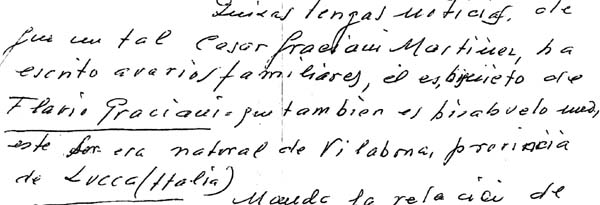 Quizas tengas noticias, de
que un tal Cesar Graciani Martinez, ha
escrito a varios familiares, él es, biznieto de
Flavio Graciani - que tambien es bisabuelo mio,
este era natural de Vilabona, provincia
de Lucca (Italia)
Mando la relacion de